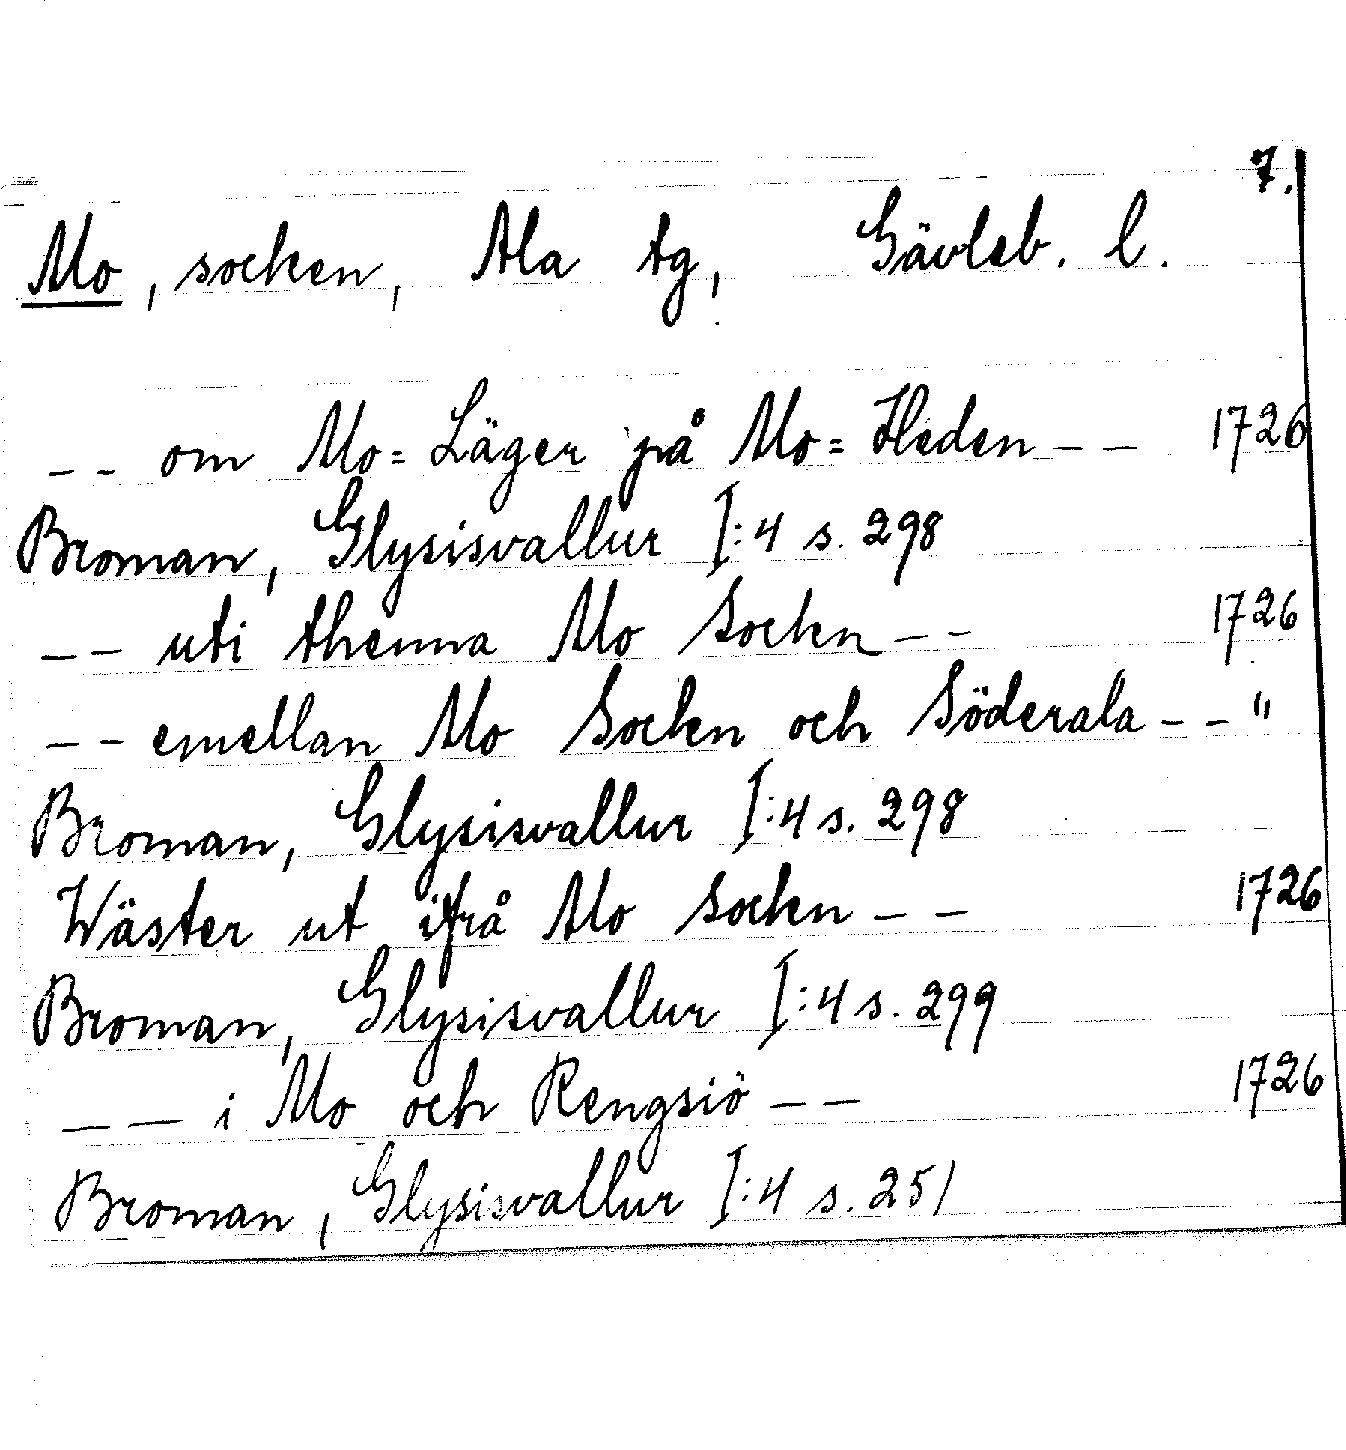 7.
Mo, socken, Ala tg, Gävleb. l.
-- om Mo=Läger på Mo=Heden -- 1726
Broman, Glysisvallur I:4 s. 298
-- uti thenna Mo Sockn -- 1726
-- emellan Mo Sockn och Söderala -- "
Broman, Glysisvallur I:4 s. 298
Wäster ut ifrå Mo Sockn -- 1726
Broman, Glysisvallur I:4 s. 299
-- i Mo och Rengsiö -- 1726
Broman, Glysisvallur I:4 s. 251